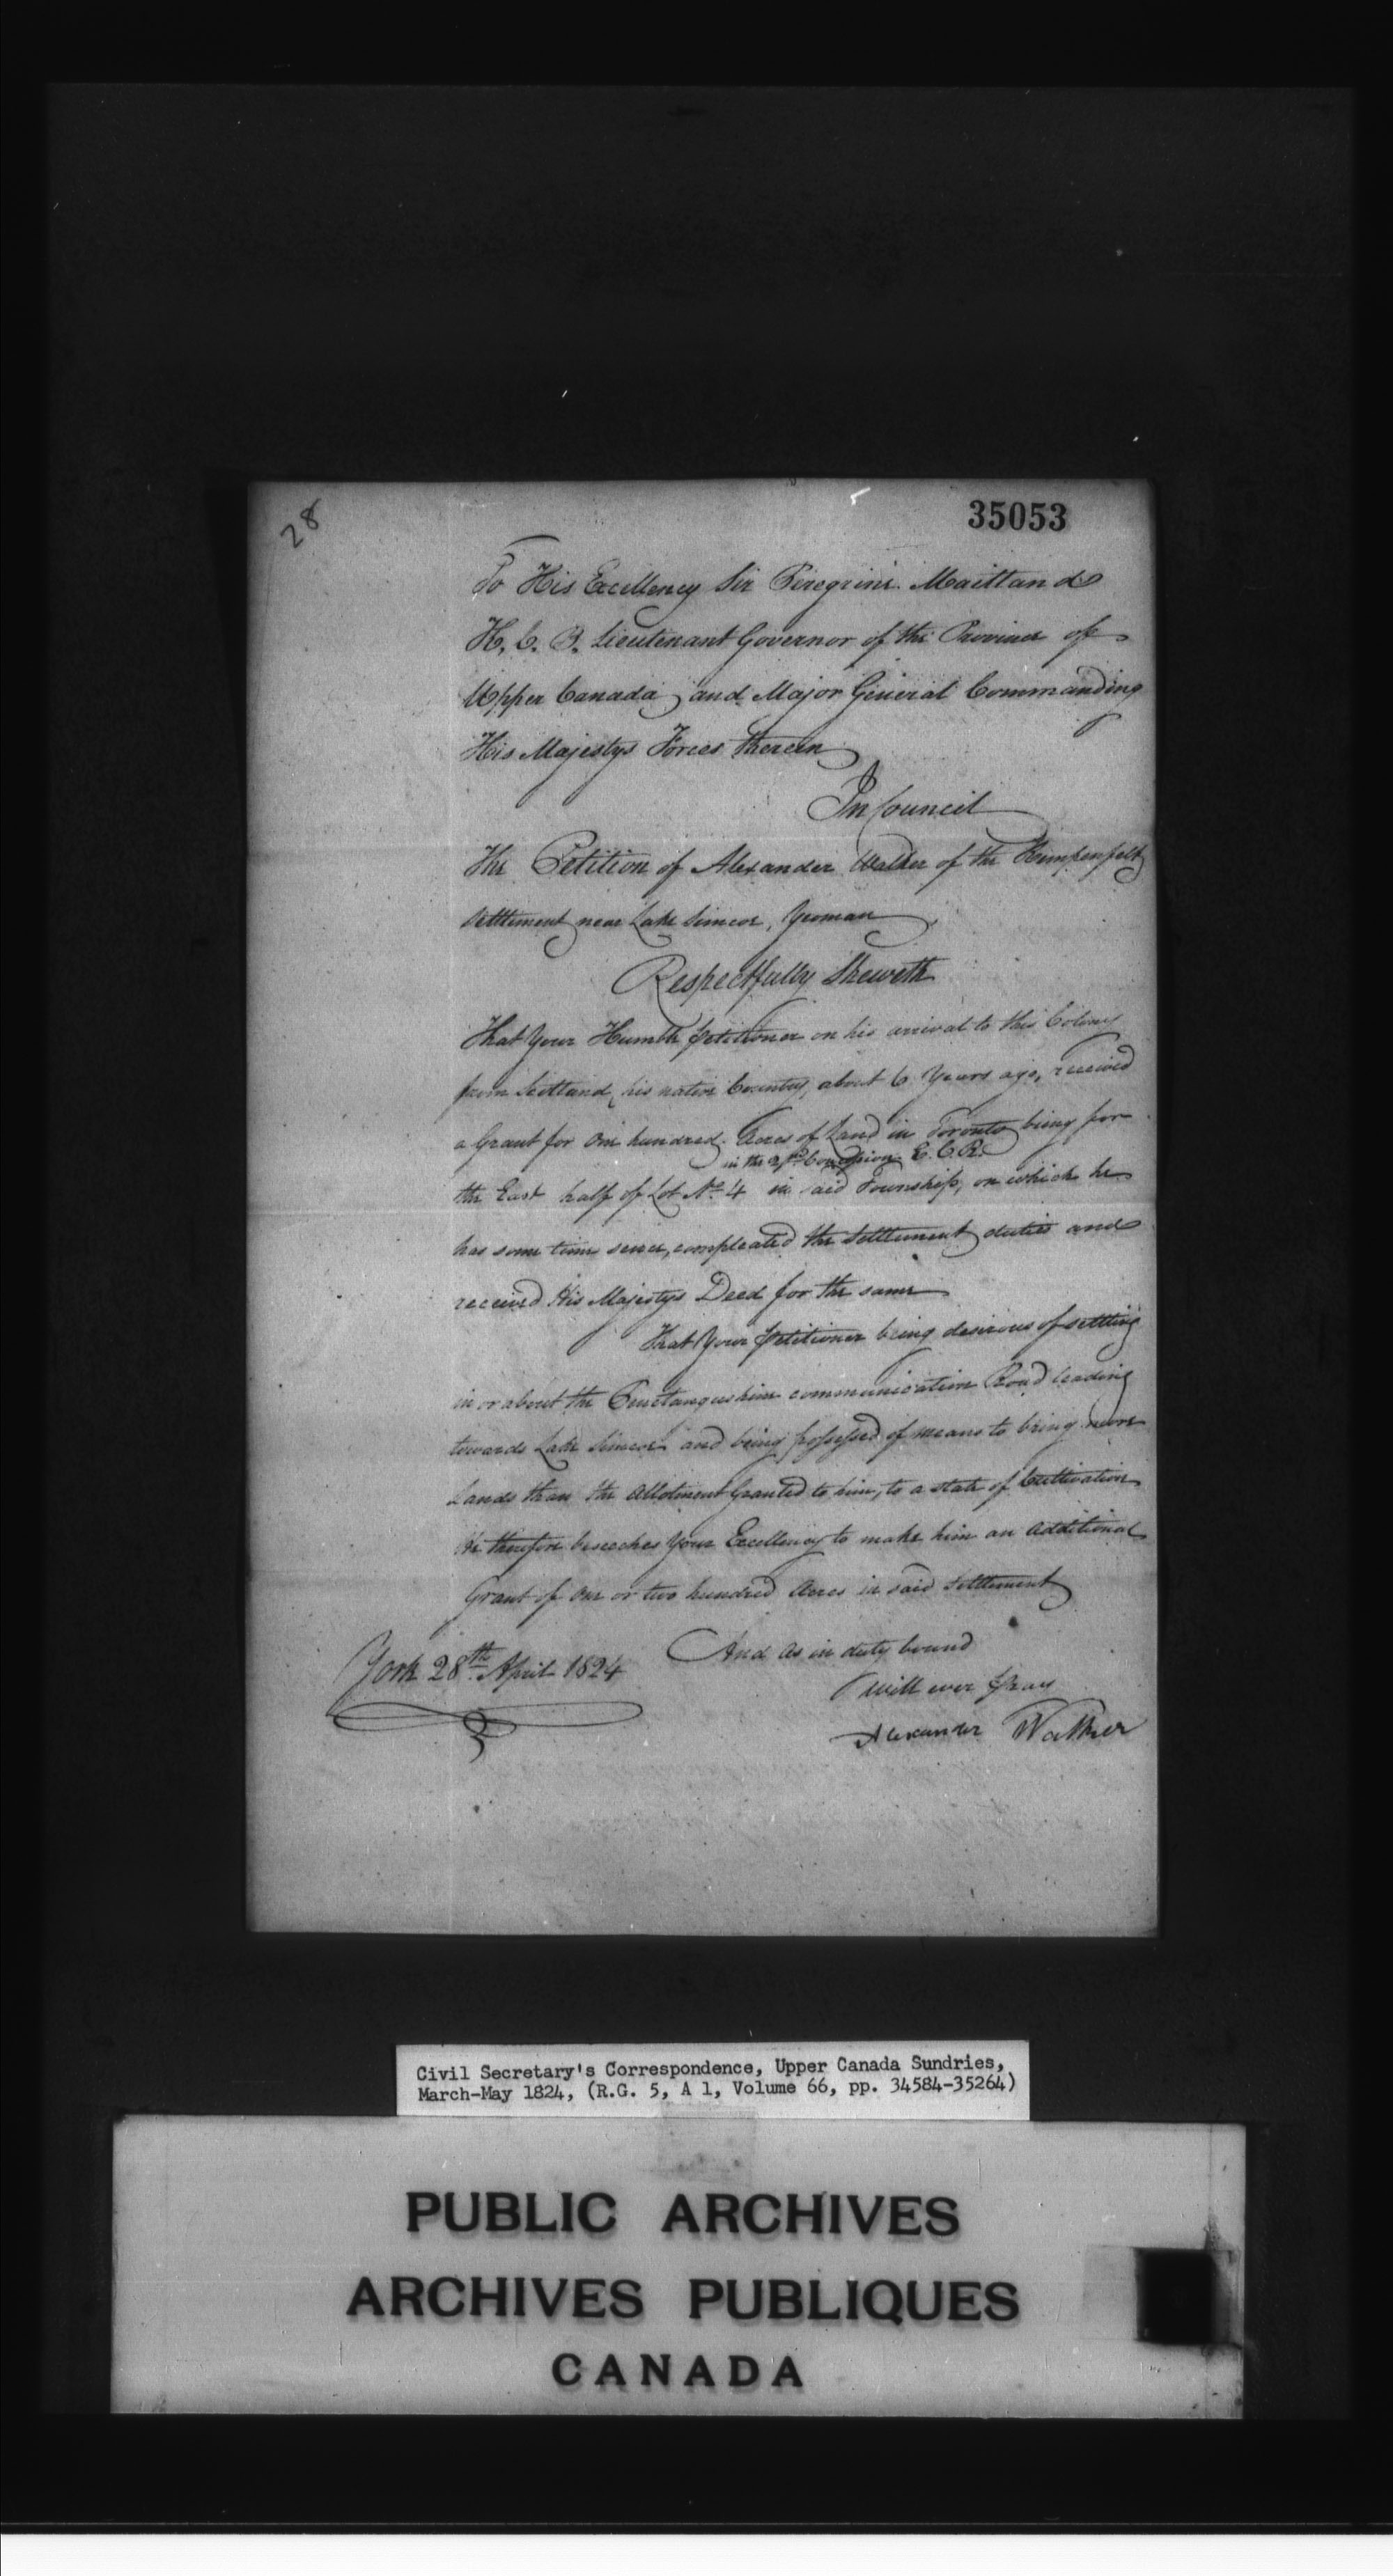 28
35053
To His Excellency Sir Peregrine Maitland
K. C. B. Lieutenant Governor of the Province of
Upper Canada and Major General Commanding
His Majestys Forces therein
In Council
The Petition of Alexander Walker of the Kempenfelt
Settlement near Lake Simcoe, Yeoman
Respectfully Sheweth
That Your Humble petitioner on his arrival to this Colony
from Scotland, his native Country, about 6 Years ago, received
a Grant for One hundred Acres of Land in Toronto being for
in the Concession E. C. R.
the East half of Lot No. 4 in said Township, on which he
has some time since, compleated the Settlement duties and
received His Majestys Deed for the same
That Your petitioner being desirous of settling
in or about the Penetangushine communication Road leading
towards Lake Simcoe and being possessed of means to bring more
Lands than the Allotment Granted to him, to a state of Cultivation
He therefore beseeches Your Excellency to make him an Additional
Grant of One or two hundred Acres in said Settlement
And as in duty bound
York 28th April 1824
will ever pray
Alexander Walker
Civil Secretary's Correspondence, Upper Canada Sundries,
March-May 1824, (R.G. 5, A 1, Volume 66, pp. 34584-35264)
PUBLIC ARCHIVES
ARCHIVES PUBLIQUES
CANADA